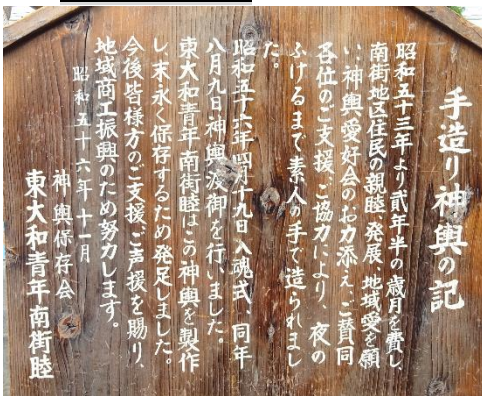 手造り神輿の記
昭和五十三年より貳年半の歳月を費し、
南街地区住民の親睦、発展、地域愛を願
い、神輿愛好会のお力添え、ご賛同
各位のご支援、ご協力により、夜の
ふけるまで素人の手で造られまし
た。
昭和五十六年四月十九日入魂式、同年
八月九日神輿渡御を行いました。
東大和青年南街睦はこの神輿を製作
し、末永く保存するため発足しました。
今後皆様方のご支援、ご声援を賜り、
地域商工振興のため努力します。
昭和五十六年十一月
神輿保存会
東大和青年南街睦